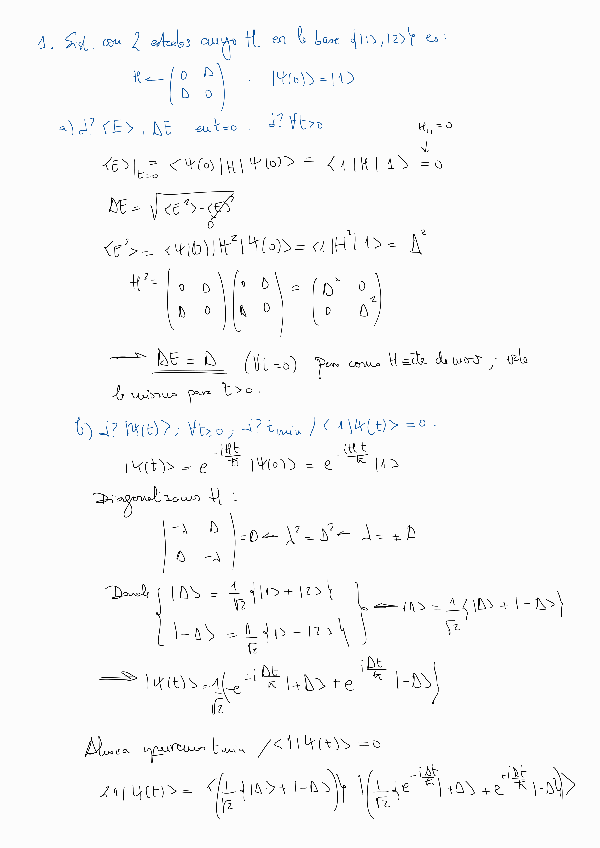 1. Sist. con 2 estados cuyo H. en la base {|1>, |2>} es:
H ← ( 0 Δ ; Δ 0 ) . |Ψ(0)> = |1>
a) ¿? <E>, ΔE en t=0. ¿? ∀t>0
H₁₁ = 0
↓
<E>|t=0 = <Ψ(0)|H|Ψ(0)> = <1|H|1> = 0
ΔE = √(<E²> - <E>²)
0
<E²> = <Ψ(0)|H²|Ψ(0)> = <1|H²|1> = Δ²
H² = ( 0 Δ ; Δ 0 ) ( 0 Δ ; Δ 0 ) = ( Δ² 0 ; 0 Δ² )
→ ΔE = Δ (∀t=0) Pero como H = cte de mov, vale
lo mismo para t>0.
b) ¿? |Ψ(t)>, ∀t>0, ¿? tmin / <1|Ψ(t)> = 0.
|Ψ(t)> = e^(-iHt/ħ) |Ψ(0)> = e^(-iHt/ħ) |1>
Diagonalizamos H:
| -λ Δ ; Δ -λ | = 0 ← λ² = Δ² ← λ = ±Δ
Donde { |Δ> = 1/√2 {|1> + |2>}
{ |-Δ> = 1/√2 {|1> - |2>} } ← |1> = 1/√2 {|Δ> + |-Δ>}
⟹ |Ψ(t)> = 1/√2 {e^(-iΔt/ħ) |+Δ> + e^(iΔt/ħ) |-Δ>}
Ahora tmin / <1|Ψ(t)> = 0
<1|Ψ(t)> = <(1/√2 {|Δ> + |-Δ>}) | (1/√2 {e^(-iΔt/ħ) |+Δ> + e^(+iΔt/ħ) |-Δ>})>